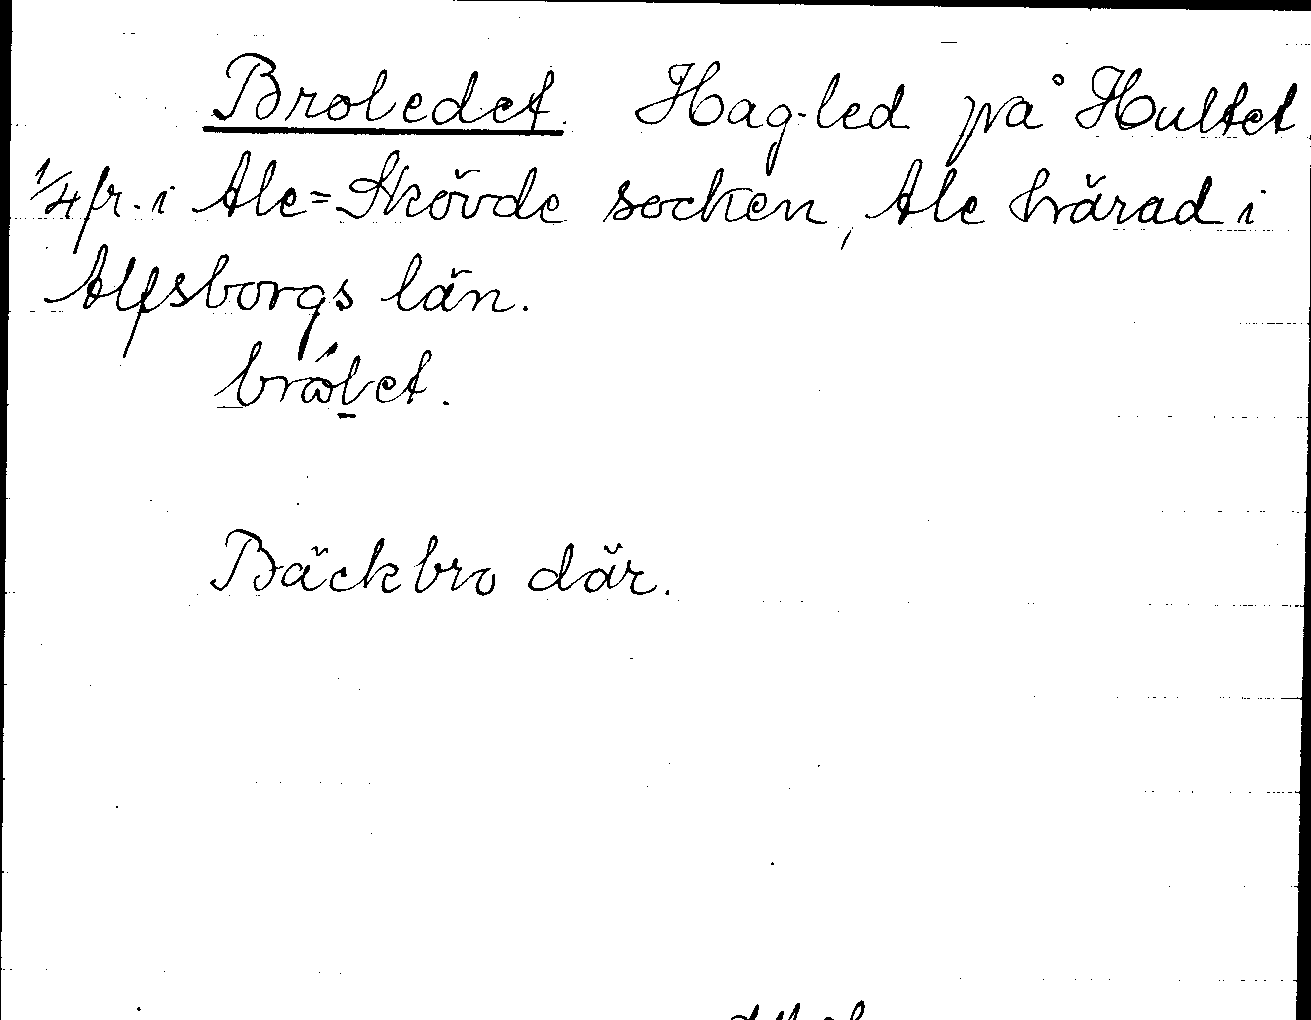 Broledet. Hag-led på Hultet
1/4 fr. i Ale=Skövde socken, Ale härad i
Älfsborgs län.
Bäckbro där.